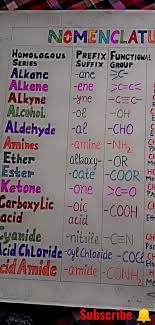 NOMENCLATU
HOMOLOGOUS SERIES PREFIX SUFFIX FUNCTIONAL GROUP
Alkane -ane >C-
Alkene -ene >C=C<
Alkyne -yne -C≡C-
Alcohol -ol -OH
Aldehyde -al -CHO
Amines -amine -NH₂
Ether alkoxy- -OR
Ester -oate -COOR
Ketone -one >C=O
Carboxylic acid -oic acid -COOH
Cyanide -nitrile -C≡N
Acid Chloride -oyl chloride -COCl
Acid Amide -amide -CONH₂
Subscribe